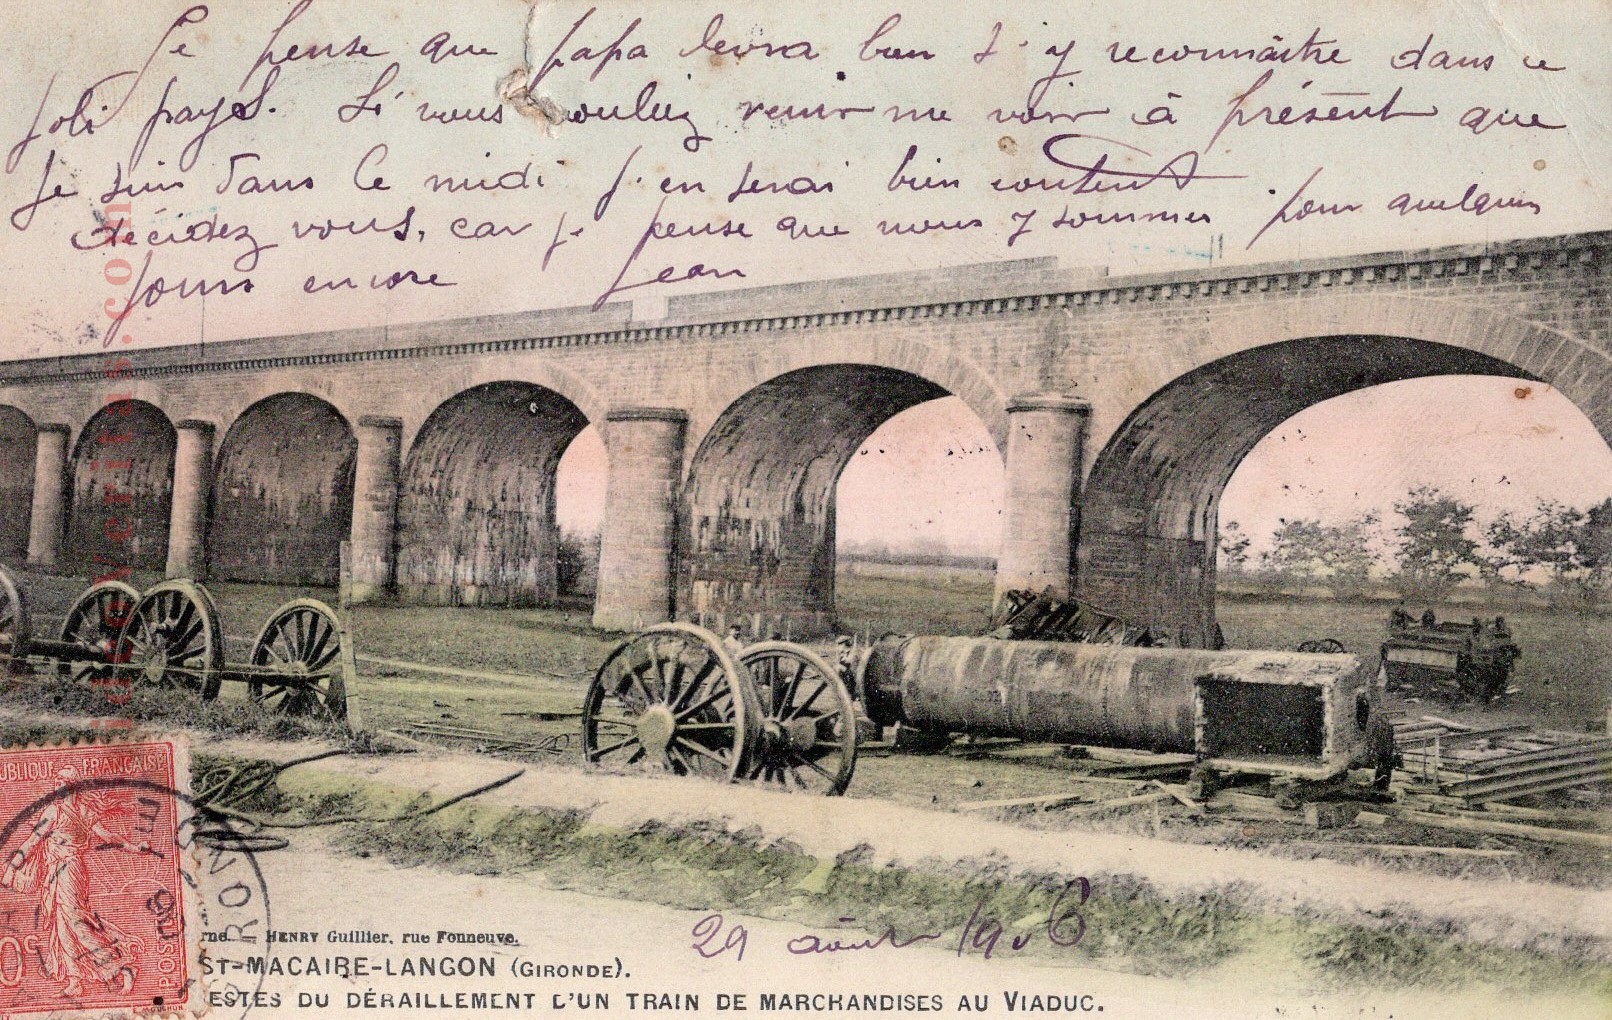 Je pense que papa devra bien s'y reconnaître dans ce
joli pays. Si vous vouliez venir me voir à présent que
je suis dans le midi j'en serai bien content
décidez vous, car je pense que nous y sommes pour quelques
jours encore Jean
PUBLIQUE FRANÇAISE
POSTES
E. MOUCHON
GIRONDE
HENRY Guillier, rue Fonneuve.
29 août 1906
ST-MACAIRE-LANGON (GIRONDE).
ESTES DU DÉRAILLEMENT D'UN TRAIN DE MARCHANDISES AU VIADUC.